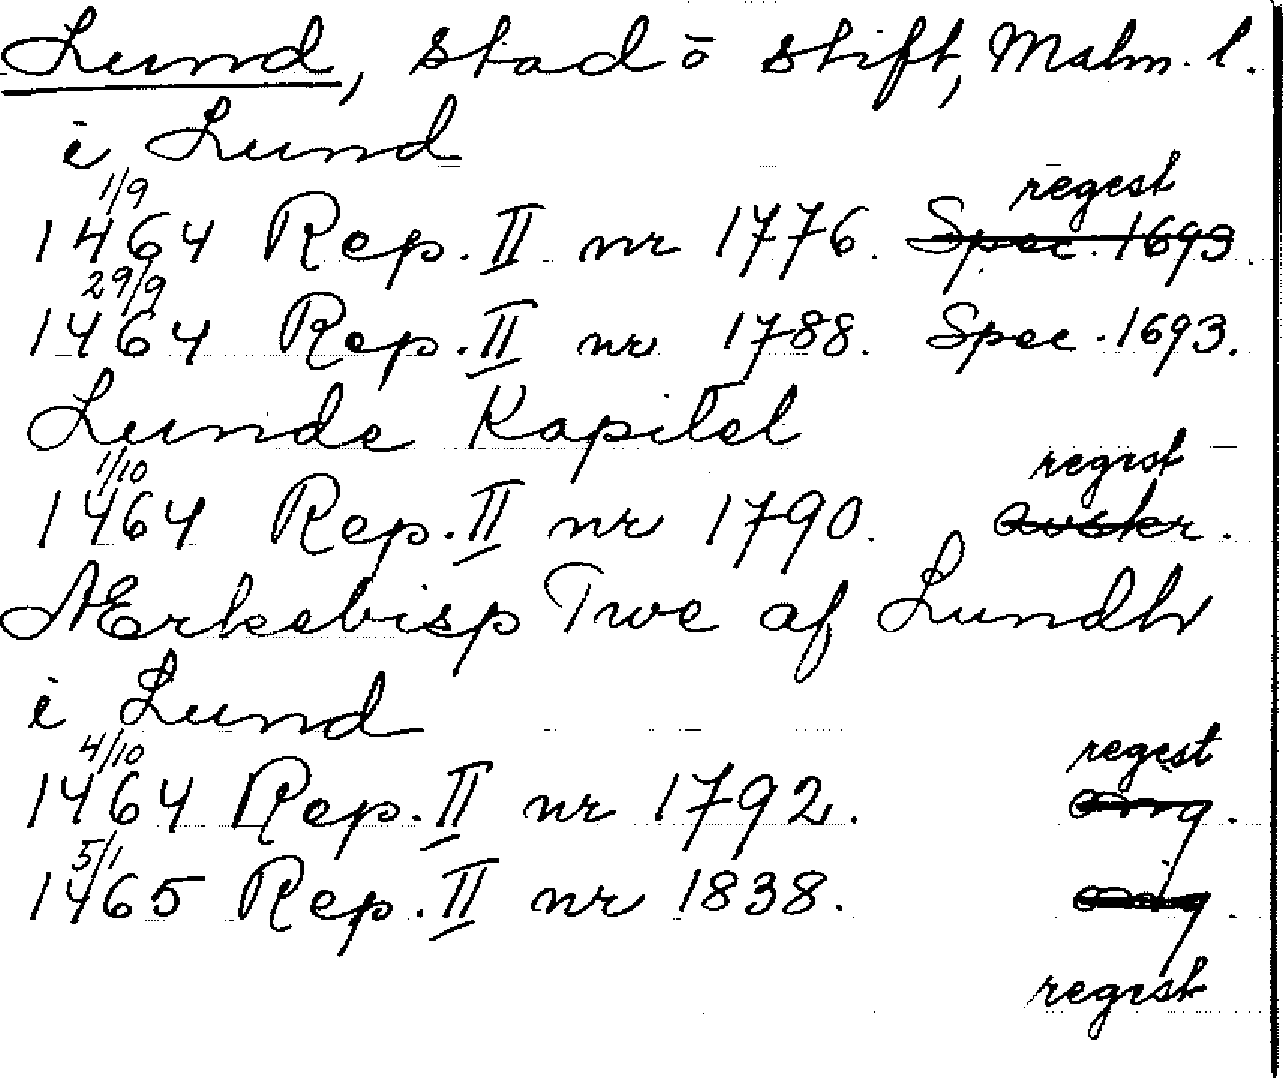 Lund, stad ō stift, Malm. l.
i Lund
1/9 regest
1464 Rep. II nr 1776. Spec. 1693.
29/9
1464 Rep. II nr 1788. Spec. 1693.
Lunde Kapitel
1/10 regest
1464 Rep. II nr 1790. avskr.
Ærkebisp Twe af Lundh
i Lund
4/10 regest
1464 Rep. II nr 1792. orig.
5/1
1465 Rep. II nr 1838. orig.
regest